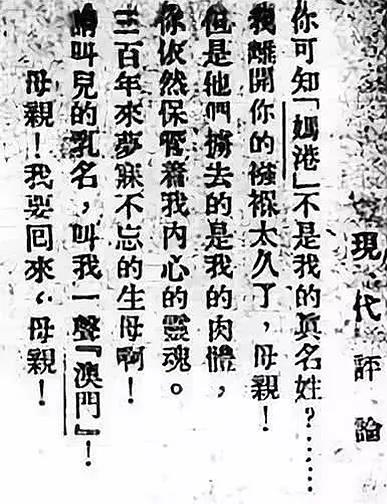 現代評論
你可知「媽港」不是我的眞名姓？……
我離開你的襁褓太久了，母親！
但是他們擄去的是我的肉體，
你依然保管着我內心的靈魂。
三百年來夢寐不忘的生母啊！
請叫兒的乳名，叫我一聲『澳門』！
母親！我要回來，母親！